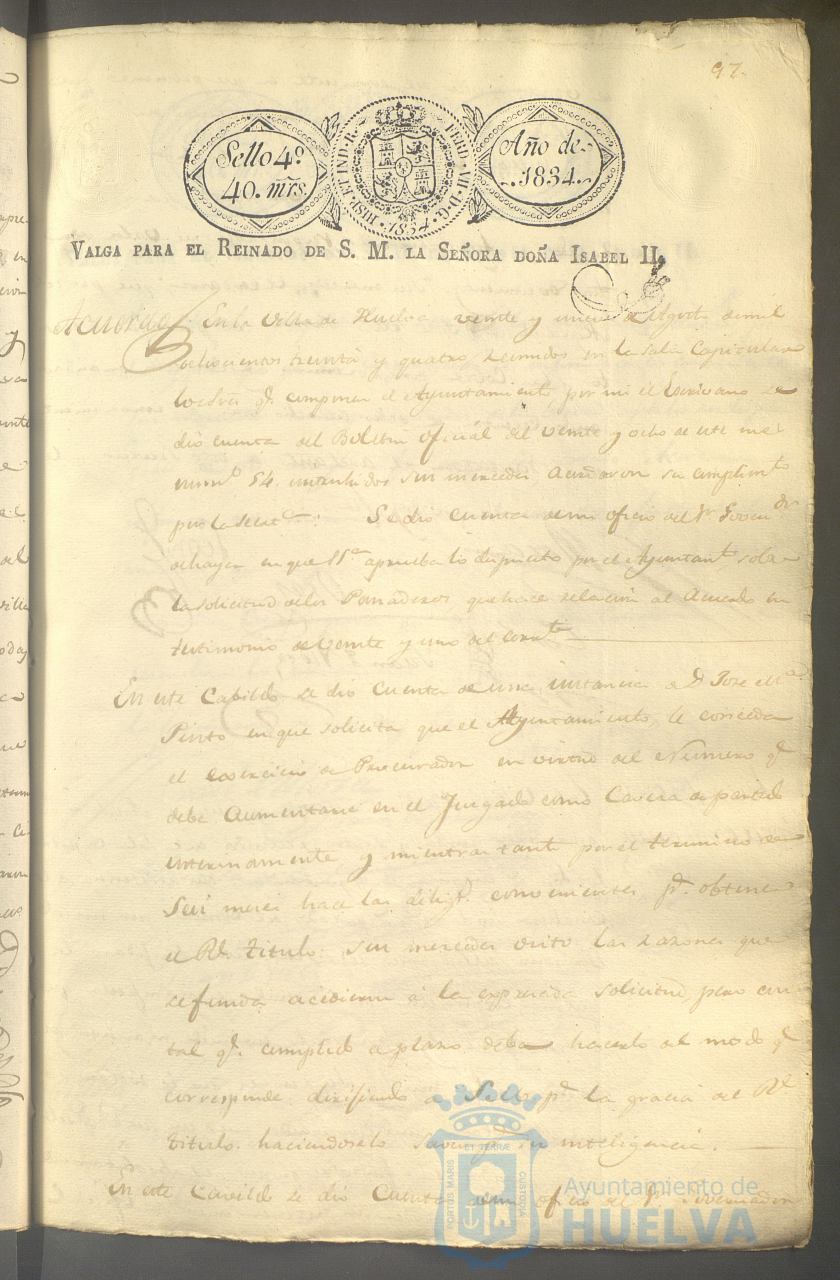 97.
Sello 4º
40. mrs.
HISP. ET IND. R. FERD. VII. D. G.
1834.
Año de
1834.
VALGA PARA EL REINADO DE S. M. LA SEÑORA DOÑA ISABEL II.
Acuerdo En la Villa de Huelva veinte y nueve de Agosto de mil
ochocientos treinta y quatro, reunidos en la sala Capitular
los Sres qe. componen el Ayuntamiento, por mi el Escrivano se
dio cuenta del Boletin oficial del veinte y ocho de este mes
numº 54. entendidos sus mercedes Acordaron su cumplimto
por la Secreta. Se dio cuenta de un oficio del Sr Governdor
en que SSª aprueba lo dispuesto por el Ayuntamto sobre
la solicitud de los Panaderos que hace relacion al Acuerdo en
testimonio de veinte y uno del corrte
En este Cavildo se dio cuenta de una instancia de Dn Jose Mª
Pinto en que solicita que el Ayuntamiento, le conceda
el exercicio de Procurador en virtud del Numero qe
debe Aumentarse en el Juzgado como Cavesa de partido
interinamente y mientras tanto por el termino de
Seis meses hace las diligs. convenientes pa. obtener
el Rl. titulo: sus mercedes visto las razones que
se funda accedieron á la expresada solicitud pero con
tal qe. cumplido el plazo deba hacerlo al modo qe
corresponde dirijiendo a S. M. pr la gracia del Rl
titulo haciendoselo saver su inteligencia.
En este Cavildo se dio Cuenta de un oficio del Sr. Governador
PORTUS MARIS ET TERRÆ CUSTODIA
Ayuntamiento de
HUELVA